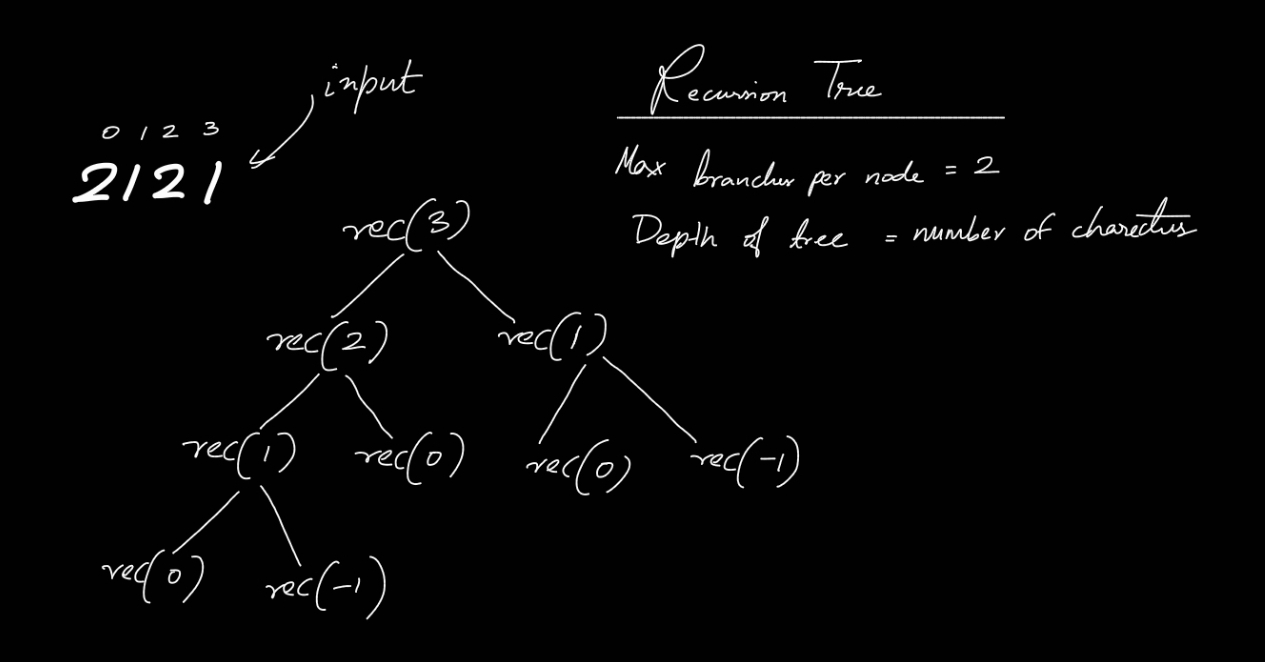 input
Recursion Tree
0 1 2 3
2121
Max branches per node = 2
Depth of tree = number of charectus
rec(3)
rec(2) rec(1)
rec(1) rec(0) rec(0) rec(-1)
rec(0) rec(-1)